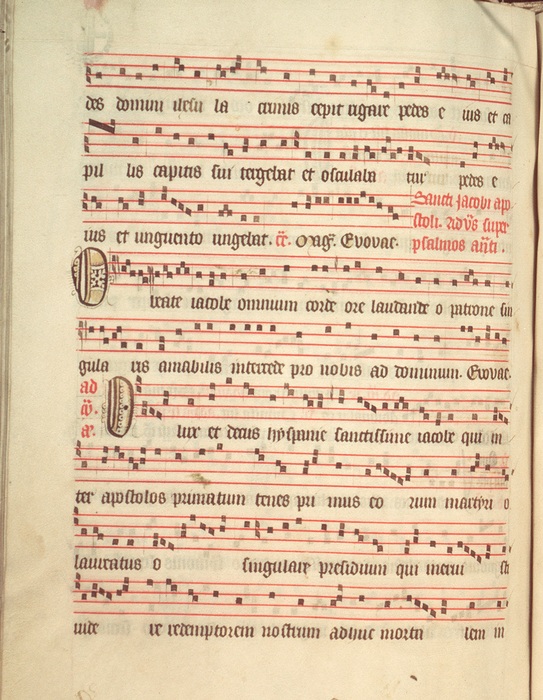 des domini iħesu la crimis cepit rigare pedes e ius et ca
pil lis capitis sui tergebat et osculaba tur pedes e
ius et unguento ungebat. Evovae. Sancti jacobi apo
stoli. ad vs supr
psalmos ant.
O beate iacobe omnium corde ore laudande o patrone sin
gula ris amabilis intercede pro nobis ad dominum. Evovae.
ad
O lux et decus hyspanie sanctissime iacobe qui in
ter apostolos primatum tenes pri mus eo rum martyri o
laureatus o singulare presidium qui merui sti
uide re redemptorem nostrum adhuc morta lem in